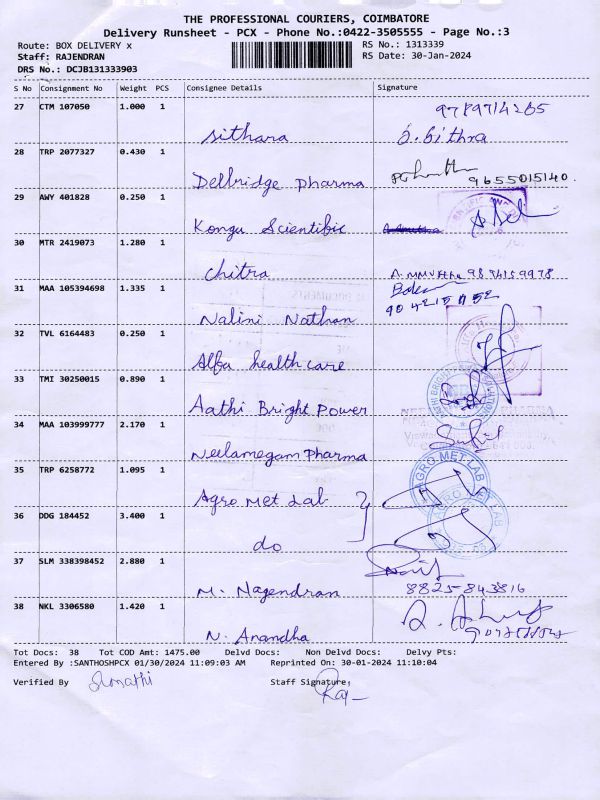 THE PROFESSIONAL COURIERS, COIMBATORE
Delivery Runsheet - PCX - Phone No.:0422-3505555 - Page No.:3
Route: BOX DELIVERY x
RS No.: 1313339
Staff: RAJENDRAN
RS Date: 30-Jan-2024
DRS No.: DCJB131333903
S No Consignment No Weight PCS Consignee Details Signature
27 CTM 107050 1.000 1
Sithara
28 TRP 2077327 0.430 1
Dellbridge Pharma 9655015140.
29 AWY 401828 0.250 1
Kongu Scientific
30 MTR 2419073 1.280 1
Chitra
31 MAA 105394698 1.335 1
Nalini Nathan
32 TVL 6164483 0.250 1
Alfa health care
33 TMI 30250015 0.890 1
Aathi Bright Power
34 MAA 103999777 2.170 1
Neelamegam Pharma
35 TRP 6258772 1.095 1
Agro Met Lab
AGRO MET LAB
36 DDG 184452 3.400 1
do
37 SLM 338398452 2.880 1
M. Nagendran 8825843816
38 NKL 3306580 1.420 1
N. Anandha
Tot Docs: 38 Tot COD Amt: 1475.00 Delvd Docs: Non Delvd Docs: Delvy Pts:
Entered By :SANTHOSHPCX 01/30/2024 11:09:03 AM Reprinted On: 30-01-2024 11:10:04
Verified By
Staff Signature:
Raj